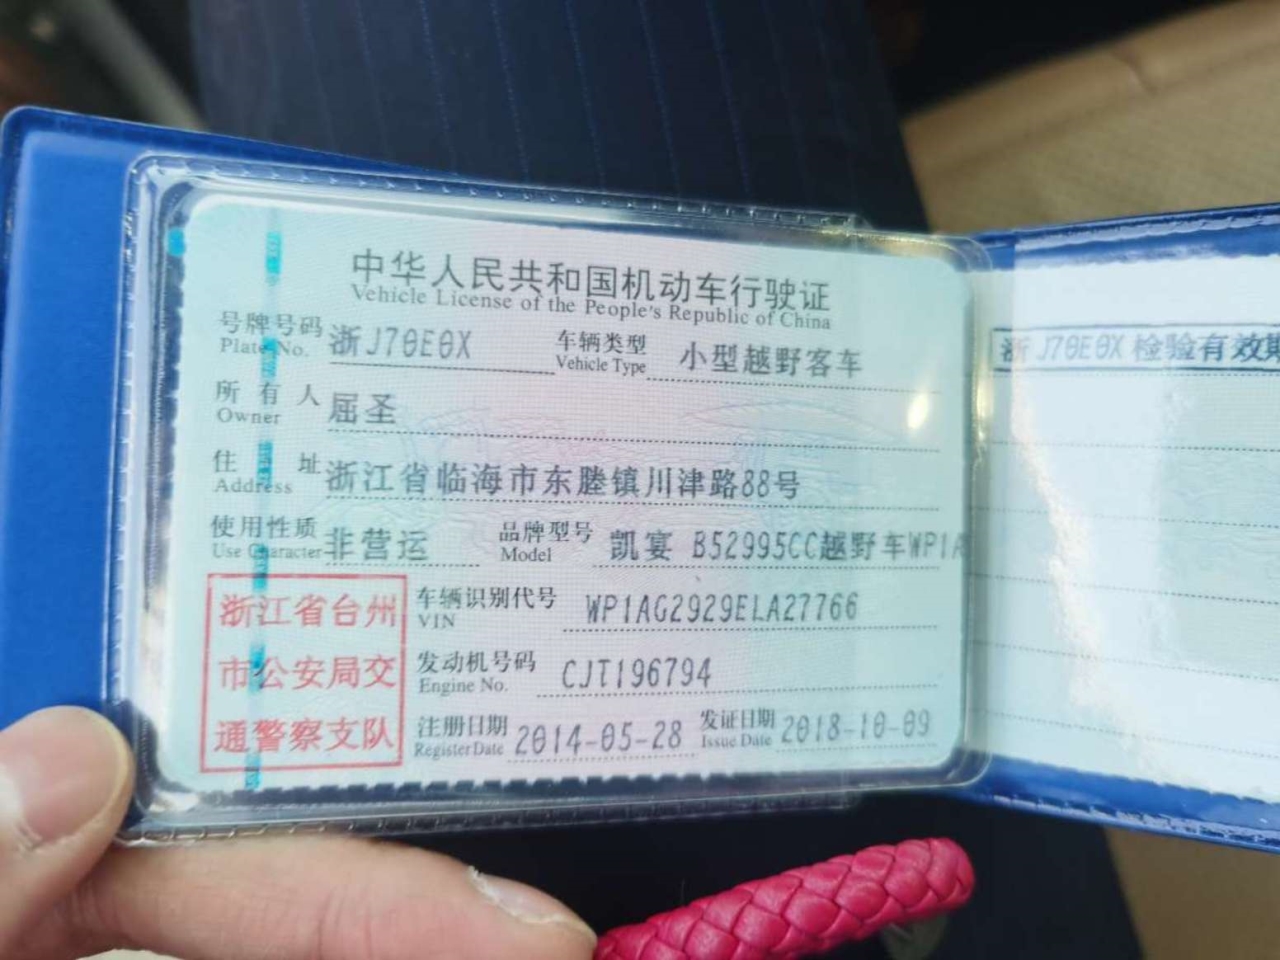 中华人民共和国机动车行驶证
Vehicle License of the People's Republic of China
号牌号码 浙J70E0X 车辆类型 小型越野客车
Plate No. Vehicle Type
所有人 屈圣
Owner
住址 浙江省临海市东塍镇川津路88号
Address
使用性质 非营运 品牌型号 凯宴 B52995CC越野车WP1A
Use Character Model
浙江省台州
市公安局交
通警察支队
车辆识别代号 WP1AG2929ELA27766
VIN
发动机号码 CJT196794
Engine No.
注册日期 2014-05-28 发证日期 2018-10-09
Register Date Issue Date
浙J70E0X 检验有效期